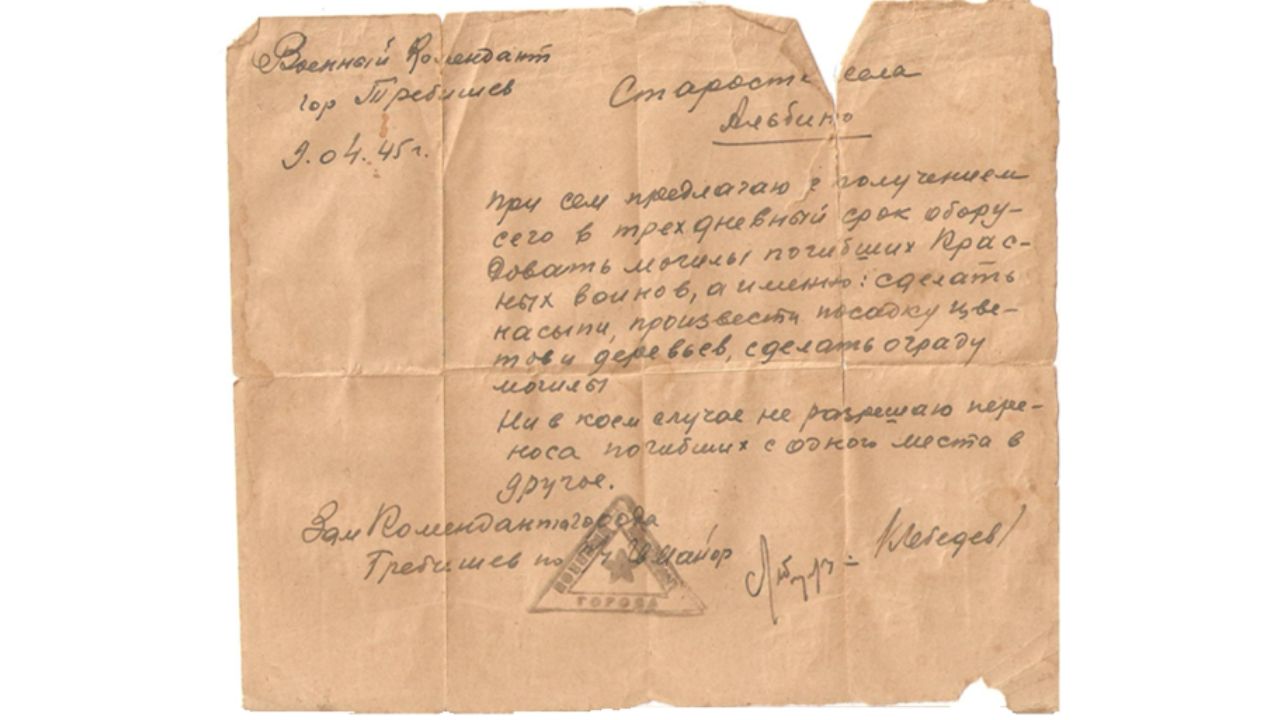 Военный Комендант
гор Требишев
9.04.45г.
Старосте села
Альбино
При сем предлагаю с получением
сего в трехдневный срок обору-
довать могилы погибших Крас-
ных воинов, а именно: сделать
насыпи, произвести посадку цве-
тов и деревьев, сделать ограду
могилы
Ни в коем случае не разрешаю пере-
носа погибших с одного места в
другое.
Зам Коменданта города
Требишев по майор
/Лебедев/
ВОЕННЫЙ
ГОРОДА